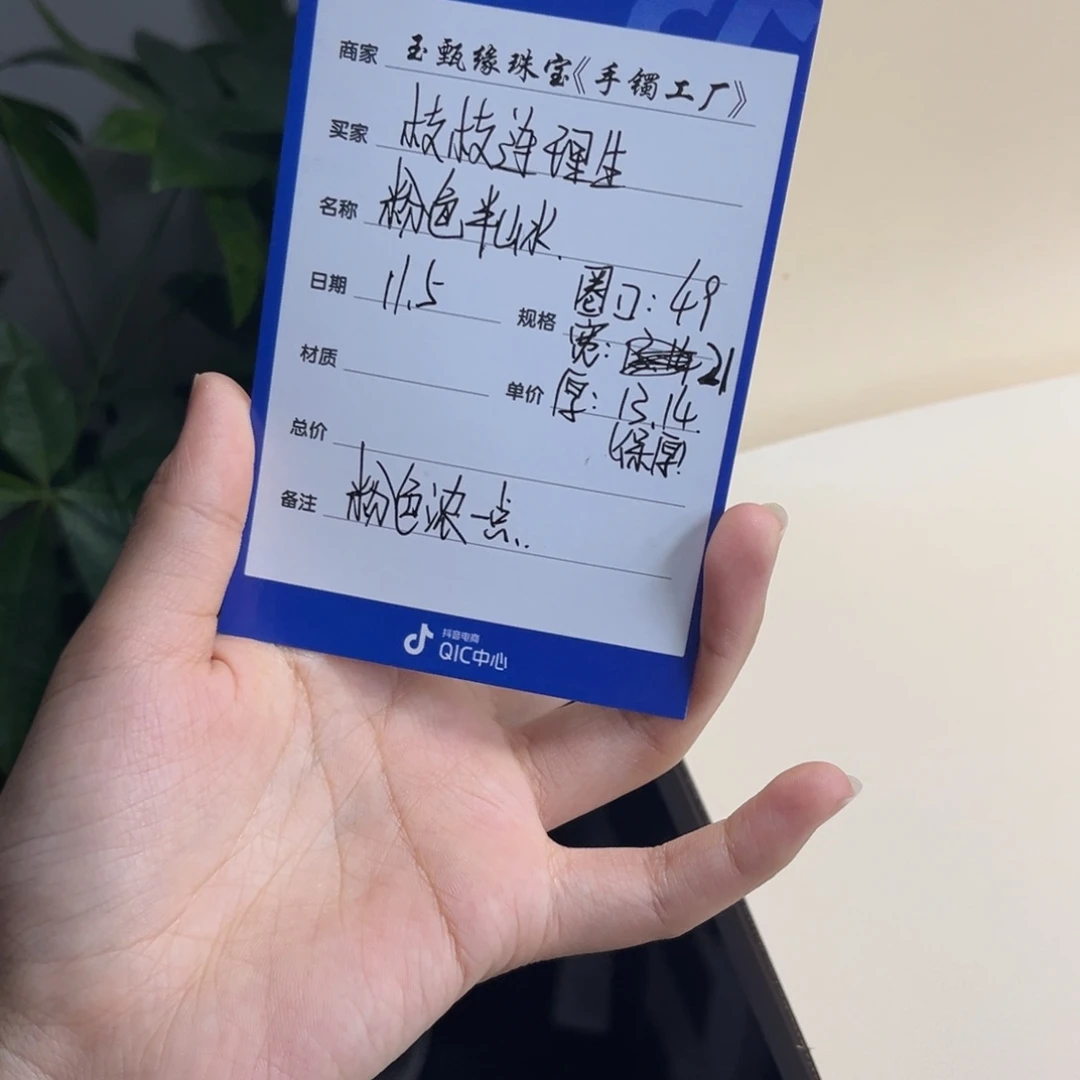 商家 玉甄缘珠宝《手镯工厂》
买家 枝枝连理生
名称 粉色半山水.
日期 11.5
规格 圈口: 49
宽: 21
材质
单价 厚: 13.14
(保厚)
总价
备注 粉色浓一点..
抖音电商
QIC中心